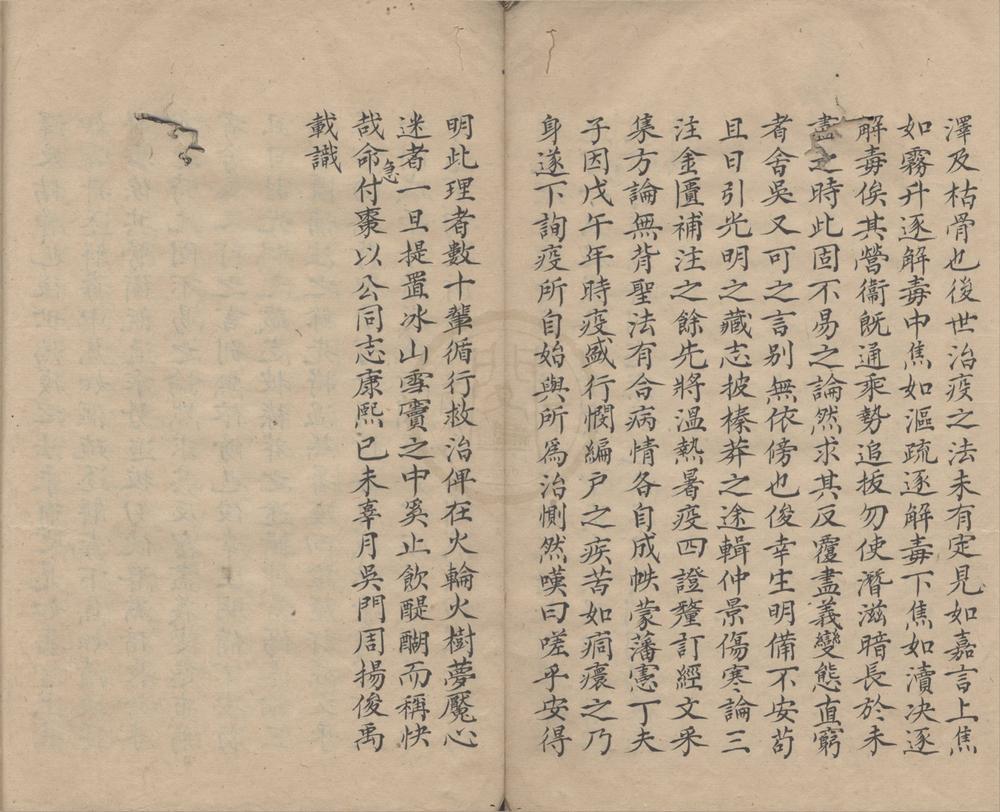 澤及枯骨也後世治疫之法未有定見如嘉言上焦
如霧升逐解毒中焦如漚疏逐解毒下焦如瀆决逐
解毒俟其營衞既通乘勢追拔勿使潛滋暗長於未
盡之時此固不易之論然求其反覆盡義變態直窮
者舍吳又可之言别無依傍也俊幸生明備不安苟
且日引光明之藏志披榛莽之途輯仲景傷寒論三
注金匱補注之餘先將溫熱暑疫四證釐訂經文采
集方論無背聖法有合病情各自成帙蒙藩憲丁夫
子因戊午年時疫盛行憫編戸之疾苦如痌瘝之乃
身遂下詢疫所自始與所爲治惻然嘆曰嗟乎安得
明此理者數十輩循行救治俾在火輪火樹夢魘心
迷者一旦提置冰山雪竇之中奚止飲醍醐而稱快
哉急命付棗以公同志康熙已未辜月吳門周揚俊禹
載識